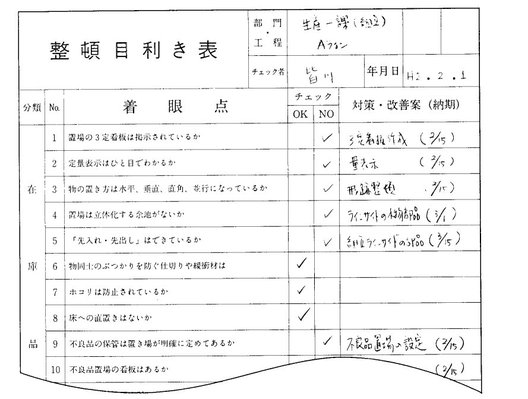 整頓目利き表
部門・工程
生産一課(組立)
Aライン
チェック者
皆川
年月日
H2.2.1
分類
No.
着眼点
チェック
OK NO
対策・改善案(納期)
在庫品
1 置場の3定看板は掲示されているか ✓ 3定看板作成 (2/15)
2 定量表示はひと目でわかるか ✓ 量表示 (2/15)
3 物の置き方は水平、垂直、直角、並行になっているか ✓ 2/15)
4 置場は立体化する余地がないか ✓ ラインサイドの (3/1)
5 「先入れ・先出し」はできているか ✓ 組立ラインサイドの部品 (2/15)
6 物同士のぶつかりを防ぐ仕切りや緩衝材は ✓
7 ホコリは防止されているか ✓
8 床への直置きはないか ✓
9 不良品の保管は置き場が明確に定めてあるか ✓ 不良品置場の設定 (2/15)
10 不良品置場の看板はあるか (2/15)